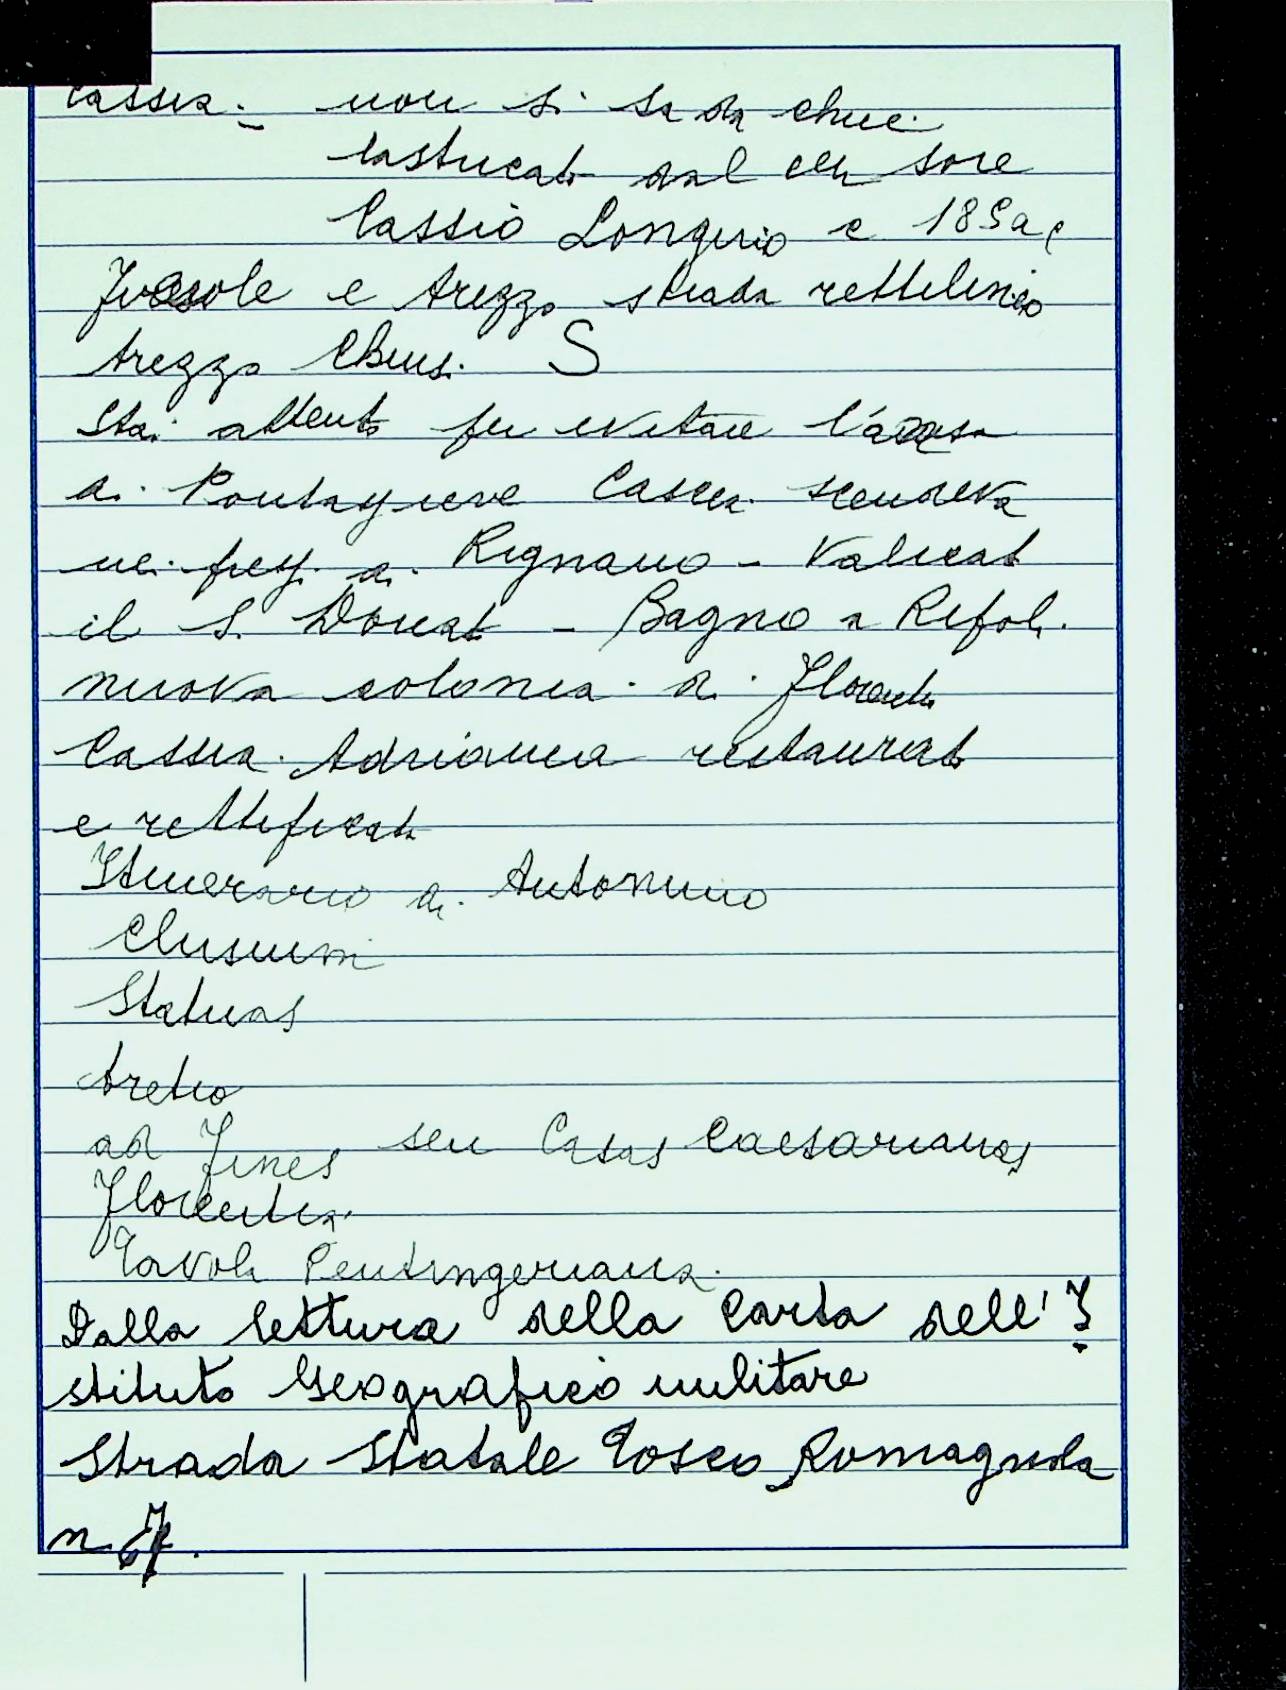 Cassia - non si sa da chi
lastricato dal censore
Cassio Longino e 185 a c
Fiesole e Arezzo strada rettilinea
Arezzo Chiusi. S
Stai attento per evitare l'ansa
di Pontassieve Cassia scendeva
nei pressi di Rignano - Valicato
il S. Donato - Bagno a Ripoli.
nuova colonia di Florentia
Cassia Adrianea restaurata
e rettificata
Itinerario di Antonino
Clusium
Statuas
Aretio
ad Fines seu Casas Caesarianas
Florentia
Tavola Peutingeriana.
Dalla lettura della Carta dell'I
stituto Geografico militare
Strada Statale Tosco Romagnola
n 67.